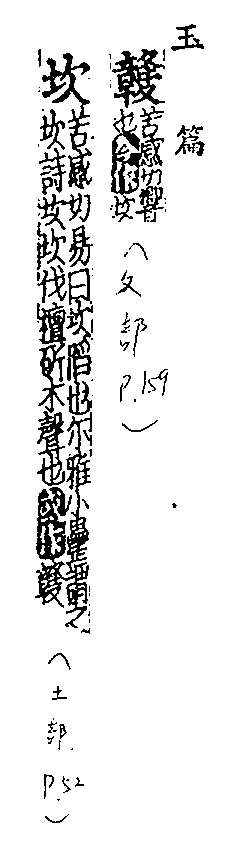 玉篇
竷苦感切聲
也今作坎
(夊部 P.159)
坎苦感切易曰坎陷也尔雅小罍謂之
坎詩坎坎伐檀斫木聲也或作竷
(土部 P.52)